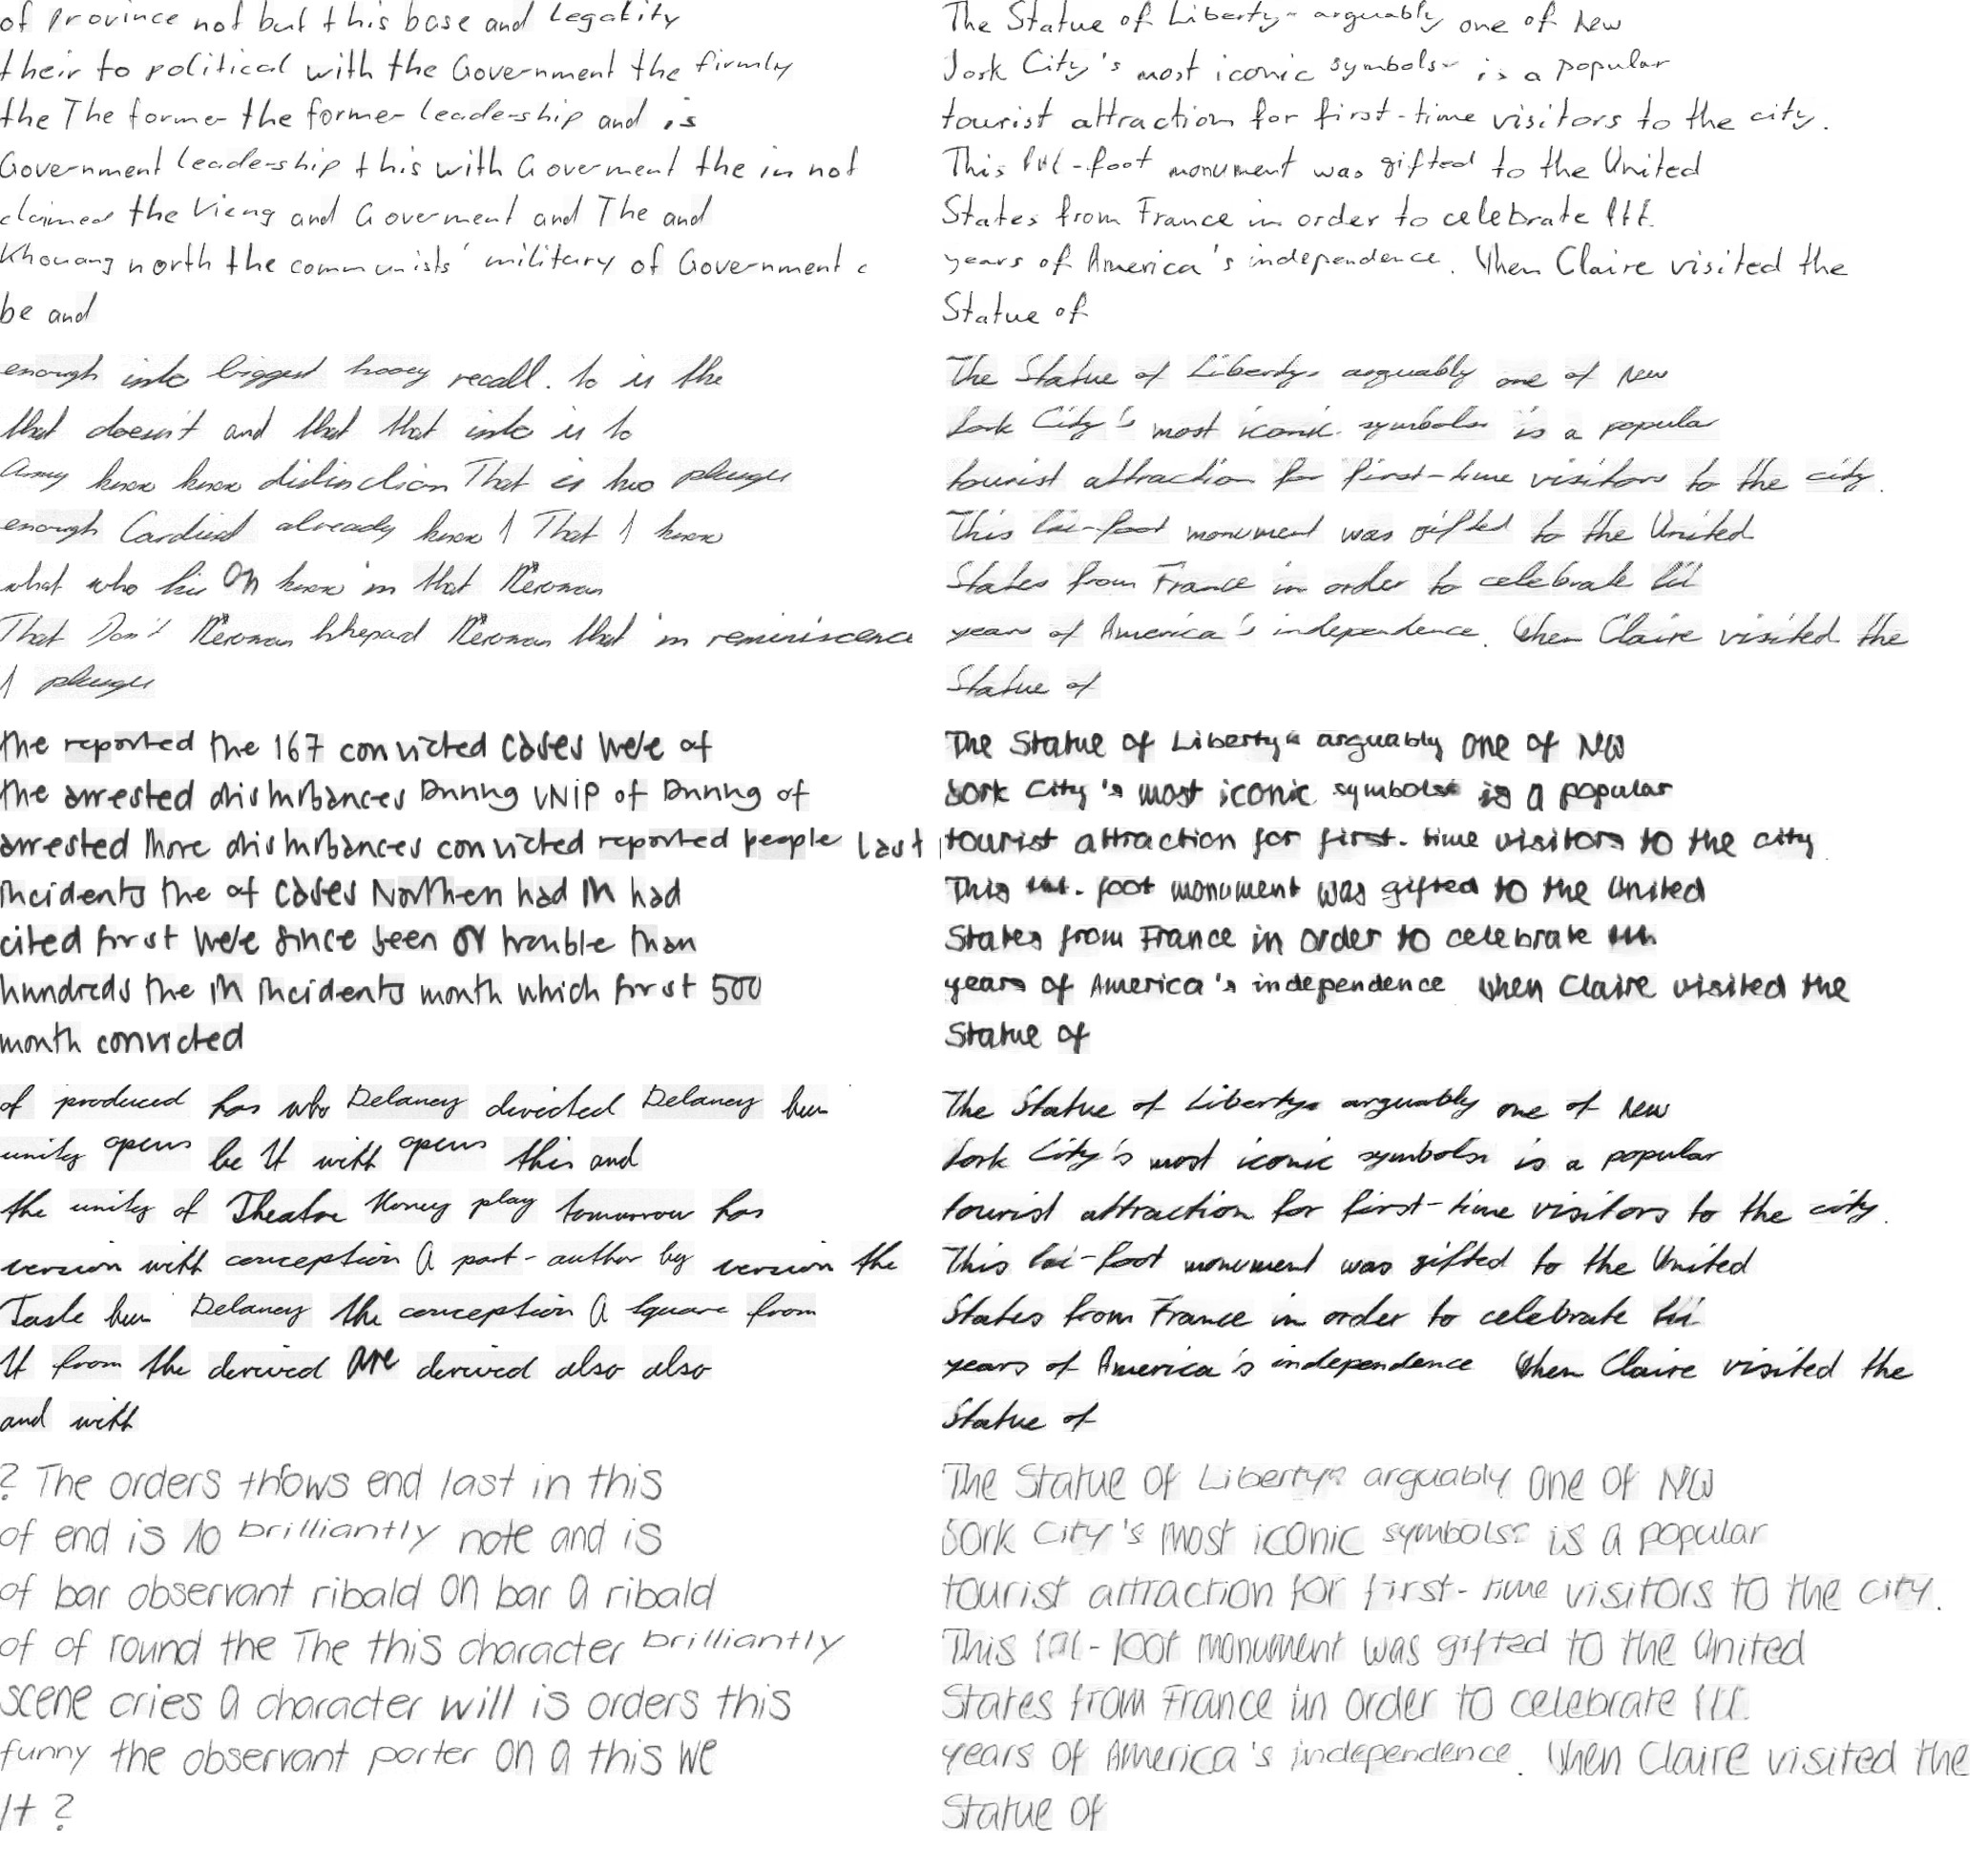 of Province not but this base and Legality
their to political with the Government the firmly
the The former the former leadership and is
Government leadership this with Goverment the in not
claimed the Vieng and Goverment and The and
Khouang north the communists' military of Government c
be and
enough into biggest hooey recall. to is the
that doesn't and that that into is to
Army know know distinction That is two plunges
enough Cardinal already know I That I know
what who his On know in that
That Don't that in reminiscence
I plunges
the reported the 167 convicted cases were of
the arrested disturbances During UNIP of During of
arrested More disturbances convicted reported people last
incidents the of cases Northern had in had
cited first were since been or trouble than
hundreds the in incidents month which first 500
month convicted
of produced has who Delaney directed Delaney
unity opens be It with opens this and
the unity of Theatre Honey play tomorrow has
version with conception A part-author by version the
Taste Delaney the conception A Square from
It from the derived are derived also also
and with
? The orders throws end last in this
of end is 10 brilliantly note and is
of bar observant ribald On bar A ribald
of of round the The this character brilliantly
scene cries A character will is orders this
funny the observant porter On a this We
It ?
The Statue of Liberty arguably one of New
Jork City's most iconic symbols is a popular
tourist attraction for first-time visitors to the city.
This -foot monument was gifted to the United
States from France in order to celebrate
years of America's independence. When Claire visited the
Statue of
The Statue of Liberty arguably one of New
City's most iconic symbols is a popular
tourist attraction for first-time visitors to the city.
This -foot monument was gifted to the United
States from France in order to celebrate
years of America's independence. When Claire visited the
Statue of
The Statue of Liberty arguably one of NW
City's most iconic symbols is a popular
tourist attraction for first-time visitors to the city
This -foot monument was gifted to the United
States from France in order to celebrate
years of America's independence When Claire visited the
Statue of
The Statue of Liberty arguably one of New
City's most iconic symbols is a popular
tourist attraction for first-time visitors to the city.
This -foot monument was gifted to the United
States from France in order to celebrate
years of America's independence When Claire visited the
Statue of
The Statue of Liberty arguably one of NW
City's most iconic symbols is a popular
tourist attraction for first-time visitors to the city.
This -foot monument was gifted to the United
States from France in order to celebrate
years of America's independence. When Claire visited the
Statue of